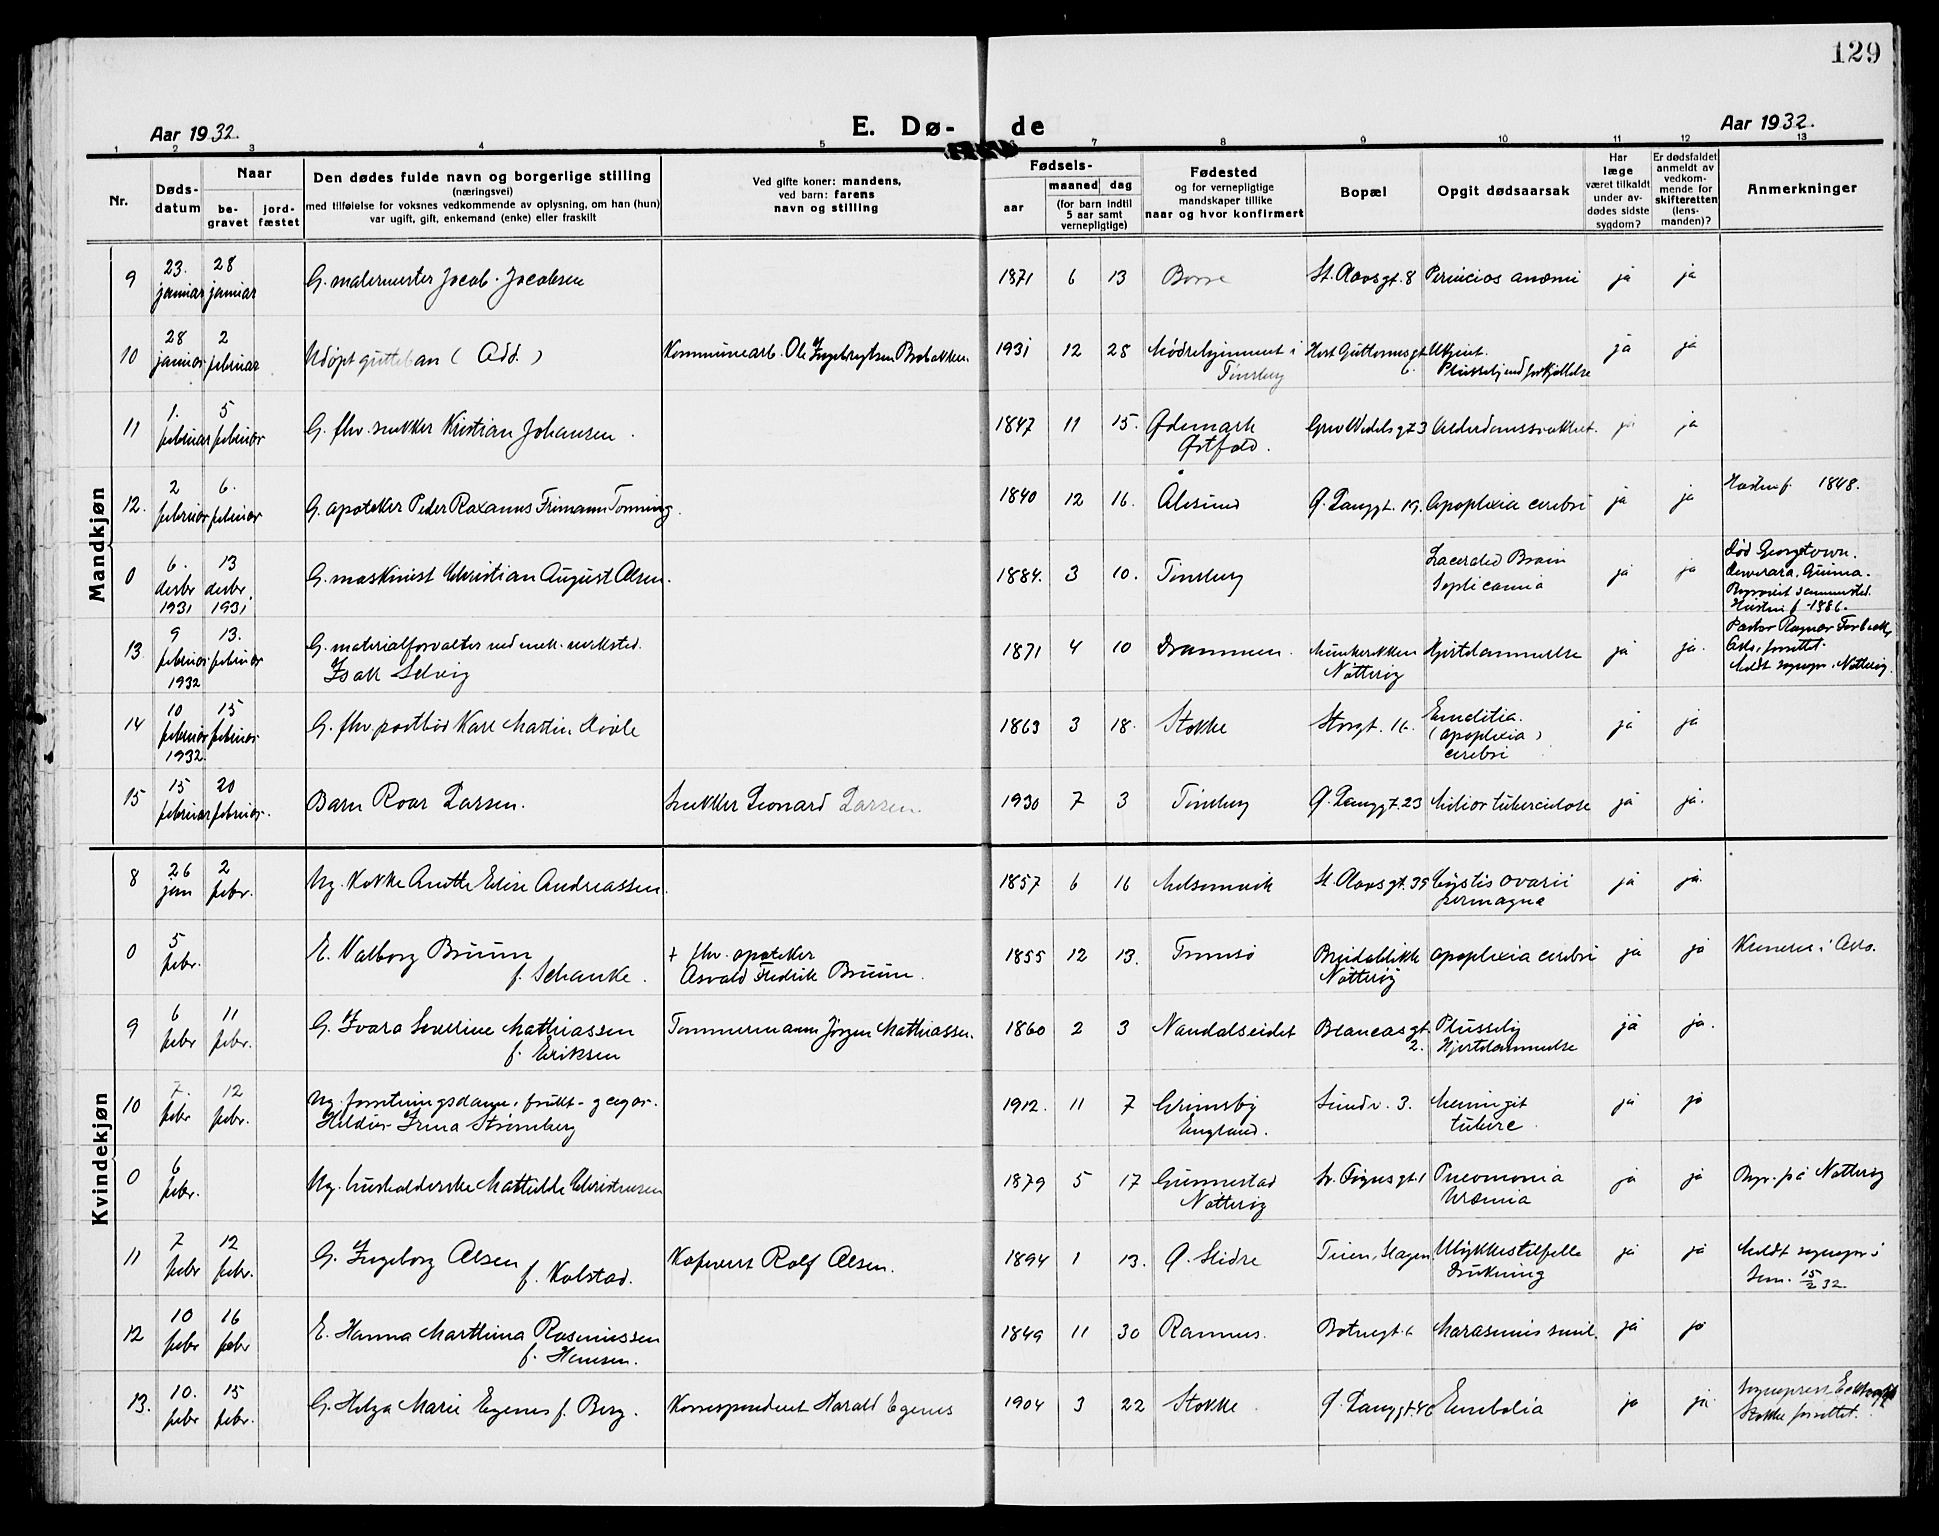 129
Aar 1932.
E. Dø-
de
Aar 1932.
1 2 3 4 5 7 8 9 10 11 12 13
Nr.
Døds-
datum
Naar
be-
gravet
jord-
fæstet
Den dødes fulde navn og borgerlige stilling
(næringsvei)
med tilføielse for voksnes vedkommende av oplysning, om han (hun)
var ugift, gift, enkemand (enke) eller fraskilt
Ved gifte koner: mandens,
ved barn: farens
navn og stilling
Fødsels-
aar
maaned
dag
(for barn indtil
5 aar samt
vernepligtige)
Fødested
og for vernepligtige
mandskaper tillike
naar og hvor konfirmert
Bopæl
Opgit dødsaarsak
Har
læge
været tilkaldt
under av-
dødes sidste
sygdom?
Er dødsfaldet
anmeldt av
vedkom-
mende for
skifteretten
(lens-
manden)?
Anmerkninger
Mandkjøn
9 23. januar 28 januar G. malermester Jacob Jacobsen 1871 6 13 Borre St. Olavsgt. 8 Perniciøs anæmi ja ja
10 28 januar 2 februar Udøpt guttebarn (Add.) Kommunearb. Ole Ingebregtsen Brobakken 1931 12 28 Mødrehjemmet i Tønsberg Hert Guttormsgt 6. Ukjent. ja ja
11 1. februar 5 februar G. fhv. snekker Kristian Johansen. 1847 11 15. Ødemark Østfold. Grev Wedelsgt 3 Alderdomssvakhet. ja ja
12. 2 februar 6. februar G. apoteker Peder Roxanus Frimann Tonning. 1840 12 16. Ålesund Ø. Langgt. 19. Apoplexia cerebri ja ja 1848.
0 6. desbr 1931 13 desbr. 1931 G. maskinist Christian August Olsen. 1884. 3 10. Tønsberg Lacerated Brain Septicæmia ja ja Død Georgetown. Demerara, Guiana. Hustru f. 1886.
13 9 februar 1932 13. februar G. materialforvalter ved mek. verksted. Isak Selvig 1871 4 10 Drammen. Munkerekken Nøtterøy Hjertelammelse ja ja. Pastor Ragnar Forbech, Oslo, forrettet. Meldt sognepr. i Nøtterøy.
14 10 februar 1932. 15 februar G. fhv. postbud Karl Martin Hvile 1863 3 18. Stokke Storgt. 16. (apoplexia) cerebri ja ja
15 15 februar 20 februar. Barn Roar Larsen. Snekker Leonard Larsen 1930 7 3 Tønsberg Ø. Langgt. 23 Miliær tuberculose ja ja.
Kvindekjøn
8 26 jan 2 febr. Ug. kokke Anette Elise Andreassen. 1857 6 16 Melsomvik St. Olavsgt. 39 Cystis ovarii permagna ja ja.
0 5 febr. E. Valborg Bruun f. Schanke. + fhv. apoteker Osvald Fredrik Bruun. 1855 12 13. Tromsø Breidablikk Nøtterøy apoplexia cerebri ja ja Kremeres i Oslo.
9 6 febr 11 febr. G. Ivara Severine Mathiassen f. Eriksen Tømmermann Jørgen Mathiassen. 1860 2 3 Nandalseidet Blancasgt 2. Plutselig Hjertelammelse ja ja.
10 7. febr 12 febr. Ug. forretningsdame, frukt- g cigar. Hildur Irma Strømberg 1912. 11 7 Grimsby England. Sundv. 3. Meningit tuberc. ja ja
0 6 febr. Ug. husholderske Mathilde Christensen 1879 5 17 Gunnestad Nøtterøy Pneumonia Uræmia ja ja Begr. på Nøtterøy
11 7 febr 12 febr. G. Ingeborg Olsen f. Kolstad. Kafevert Rolf Olsen. 1894 1 13. Ø. Slidre Teien, Slagen Ulykkestilfelle Drukning ja ja Meldt sogneprs i Sem. 15/2 32.
12 10 febr 16 febr E. Hanna Marthina Rasmussen f. Hansen. 1849 11 30 Ramnes. Botnegt. 6 Marasmus senil. ja ja
13. 10. febr 15 febr. G. Helga Marie Egenes f. Berg. Korrespondent Harald Egenes 1904 3 22 Stokke. Ø. Langgt. 46 Embolia ja ja. Sogneprest Stokke forrettet.